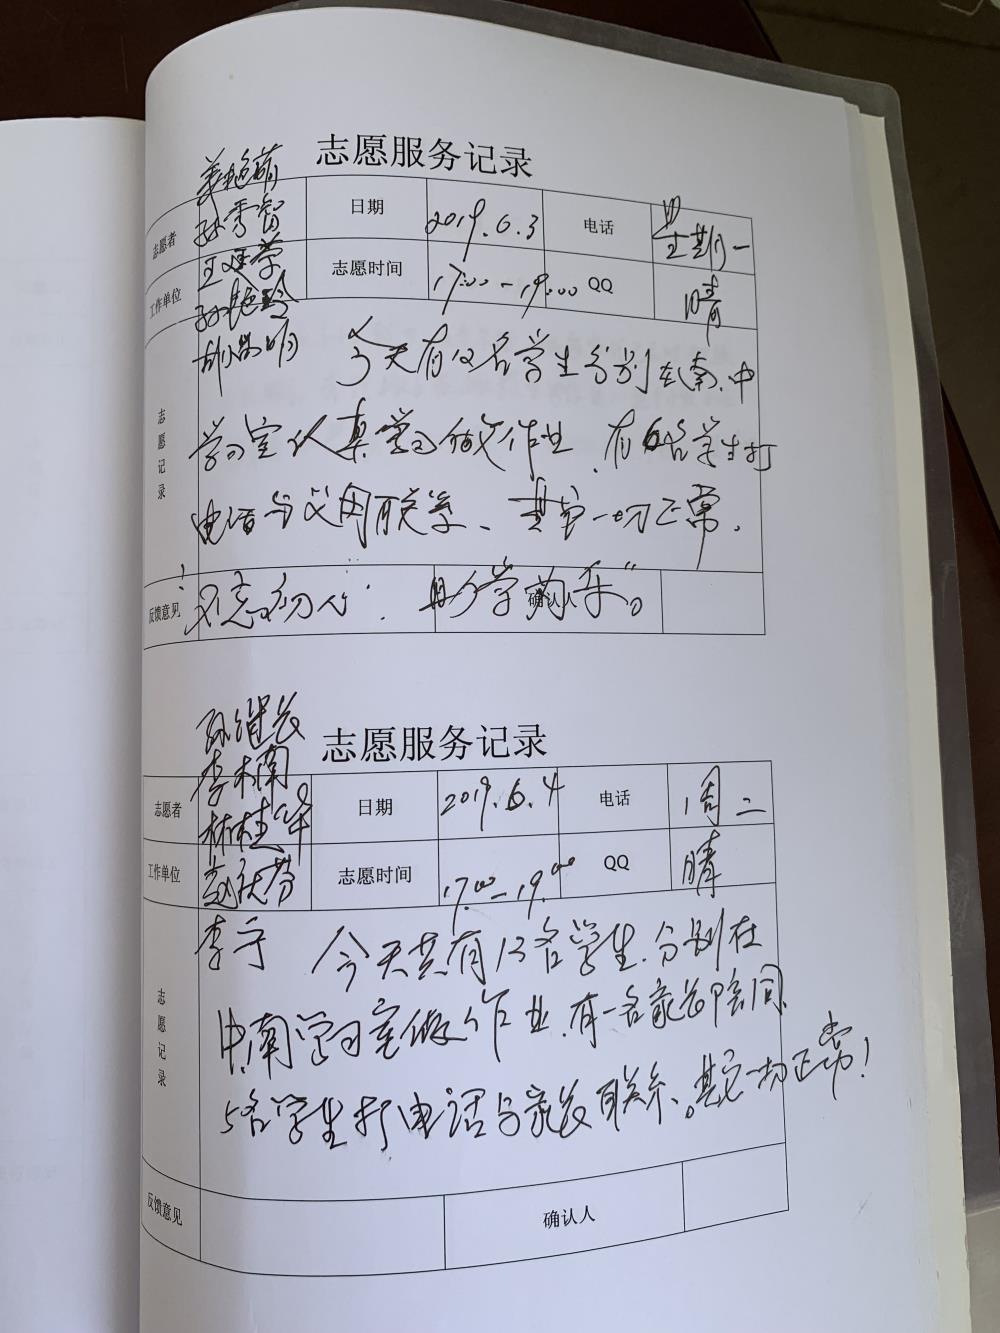 志愿服务记录
志愿者 孙秀智 日期 2019.6.3 电话 星期一
工作单位 孙艳玲 志愿时间 17:00-19:00 QQ 晴
志愿记录
今天有12名学生分别在南、中
学习室认真学习做作业、有6名学生打
电话与父母联系、其它一切正常。
反馈意见 确认人
不忘初心: 助学为乐"。
志愿服务记录
李木南
志愿者 林桂华 日期 2019.6.4 电话 周二
工作单位 赵秋芬 志愿时间 17:00-19:00 QQ 晴
李宁
志愿记录
今天共有13名学生.分别在
中、南学习室做作业.有一名家长陪同、
5名学生打电话与家长联系.。其它一切正常!
反馈意见 确认人